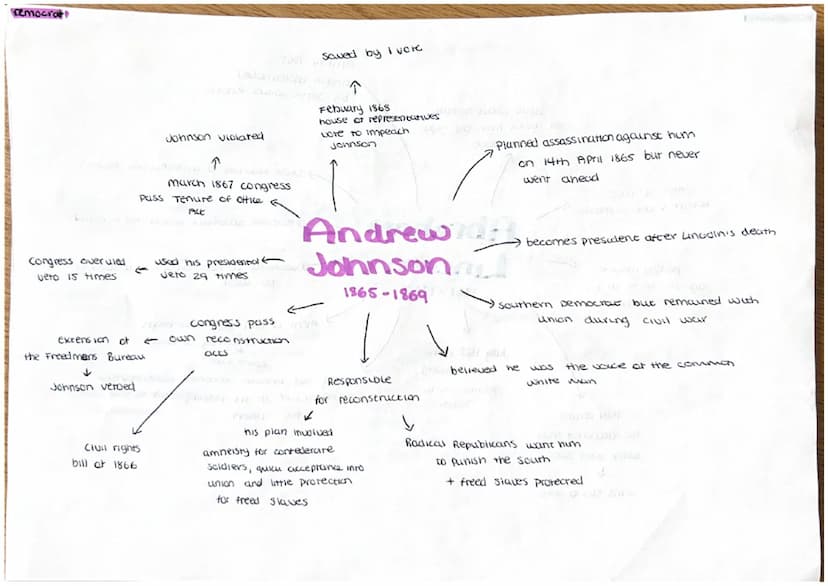 Democrat
saved by 1 vote
February 1868
house of representatives
vote to impeach
Johnson
Johnson violated
March 1867 congress
pass Tenure of Office
Act
planned assassination against him
on 14th April 1865 but never
went ahead
Andrew
Johnson
1865-1869
becomes president after Lincoln's death
Congress overruled
veto 15 times
used his presidential
veto 29 times
southern Democrat but remained with
union during civil war
congress pass
own reconstruction
acts
extension of
the Freedmens Bureau
Johnson vetoed
believed he was the voice of the common
white man
Responsible
for reconstruction
Civil rights
bill of 1866
his plan involved
amnesty for confederate
soldiers, quick acceptance into
union and little protection
for freed slaves
Radical Republicans want him
to punish the South
+ freed slaves protected